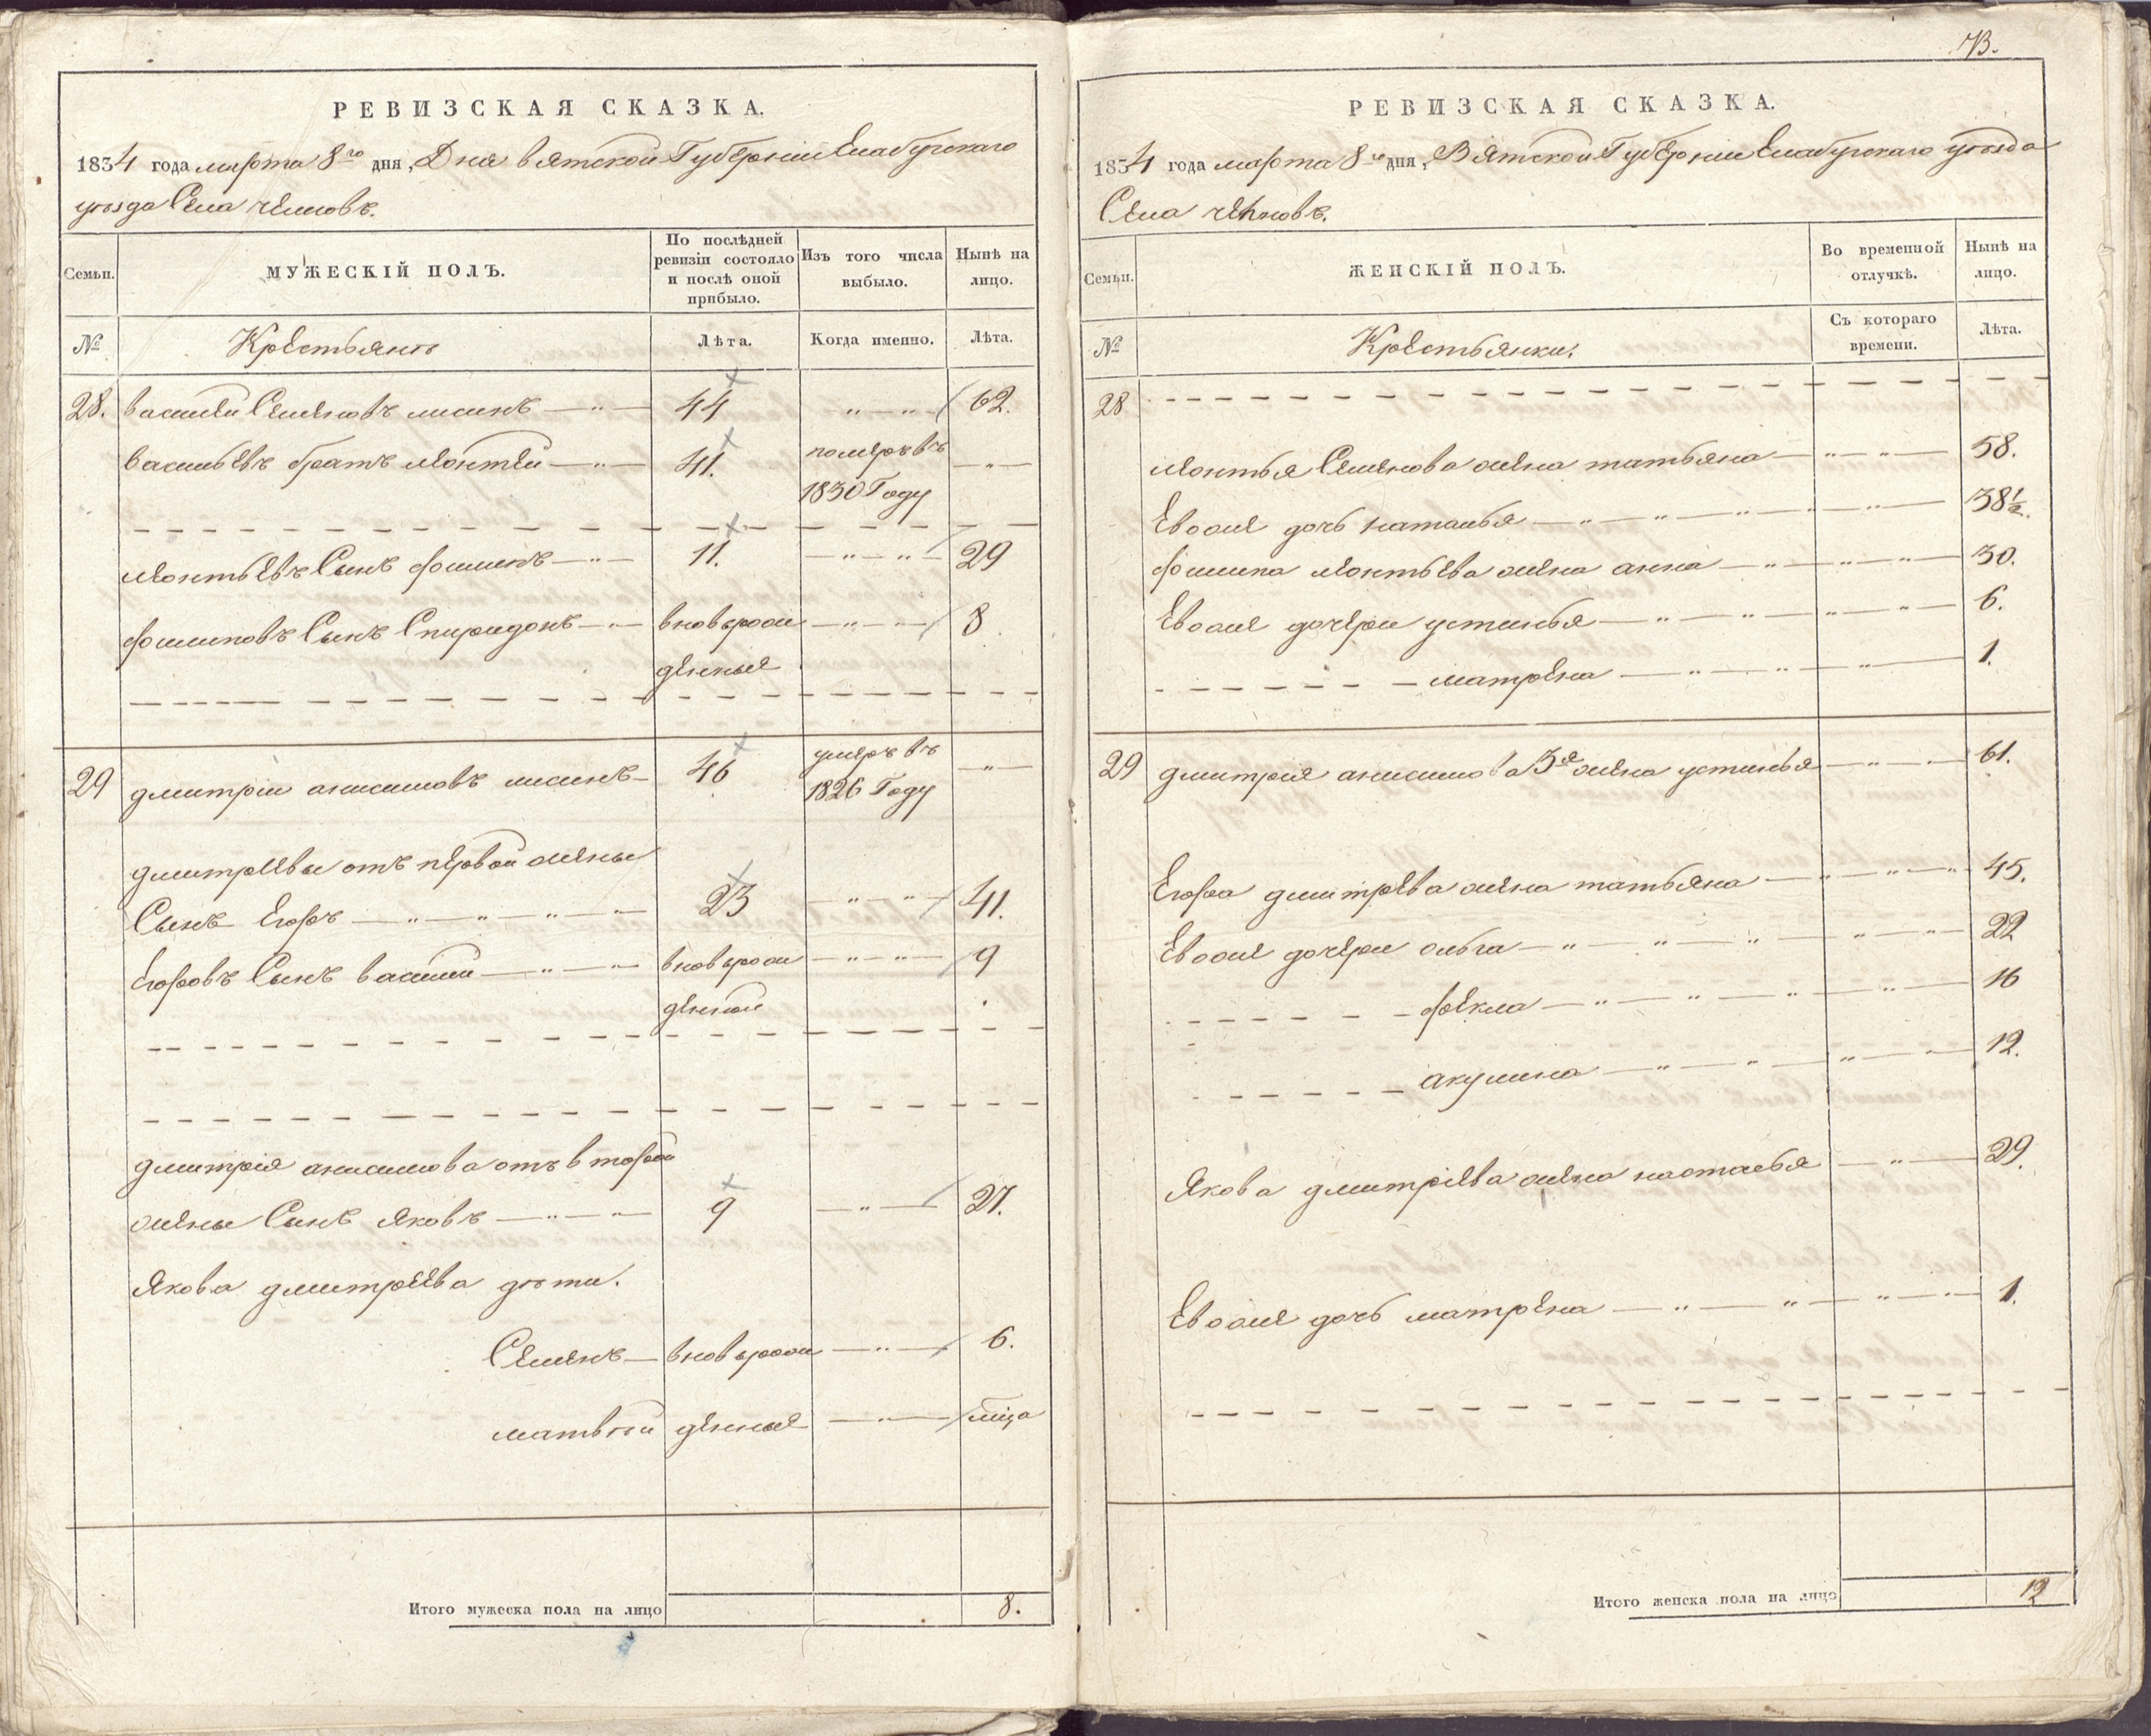 РЕВИЗСКАЯ СКАЗКА.
1834 года марта 8го дня, Дня вятской Губернии Елабугскаго
уѣзда Села челновъ.
Семьи.
МУЖЕСКІЙ ПОЛЪ.
По послѣдней ревизіи состояло и послѣ оной прибыло.
Изъ того числа выбыло.
Нынѣ на лицо.
№
Крестьянъ
Лѣта.
Когда именно.
Лѣта.
28. василей Семеновъ лисинъ 44 62.
васильевъ братъ леонтей 41. померъ въ
1830 Году
леонтьевъ Сынъ филипъ 11. 29
филиповъ Сынъ Спиридонъ вновьрож 8
денныя
29 дмитрiй анисимовъ лисинъ 46 умеръ въ
1826 Году
дмитреевы отъ первой жены
Сынъ Егоръ 23 41.
Егоровъ Сынъ василии вновьрож 9
денной
дмитрiя анисимова отъ второй
жены Сынъ яковъ 9 27.
якова дмитреева дѣти.
Семенъ вновьрож 6.
матвѣй денныя
Итого мужеска пола на лицо 8.
73.
РЕВИЗСКАЯ СКАЗКА.
1834 года марта 8го дня, Вятской Губернiи Елабугскаго уѣзда
Села челновъ.
Семьи.
ЖЕНСКІЙ ПОЛЪ.
Во временной отлучкѣ.
Нынѣ на лицо.
№
Крестьянки.
Съ котораго времени.
Лѣта.
28
леонтья Семенова жена татьяна 58.
Евоже дочь наталья 38½.
филипа леонтьева жена анна 30.
Евоже дочери устинья 6.
матрена 1.
29 дмитрея анисимова 3я жена устинья 61.
Егора дмитрева жена татьяна 45.
Евоже дочери ольга 22
фекла 16
акулина 12.
якова дмитрiева жена настасья 29.
Евоже дочь матрена 1.
Итого женска пола на лицо 12